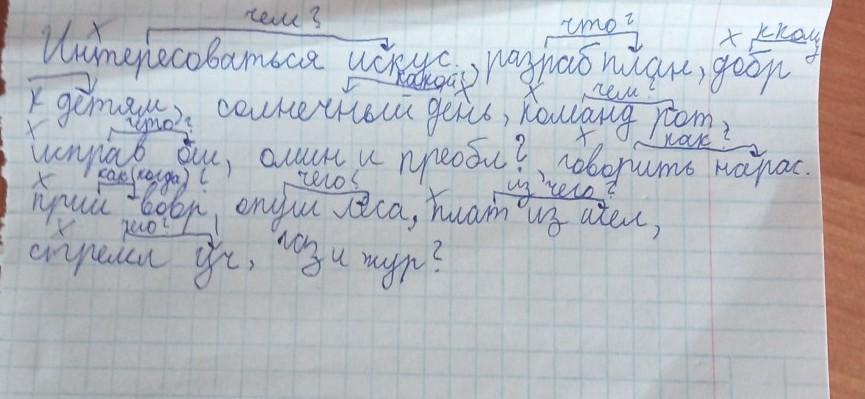 чем? что? к кому
Интересоваться искус., разраб план, добр
какой?
к детям, солнечный день, команд рот,
что? чем? как?
исправ ош, омин и преобл?, говорить нарас.
как (когда)? чего? из чего?
прий вовр, опуш леса, плат из шел,
стремл уч, газ и жур?